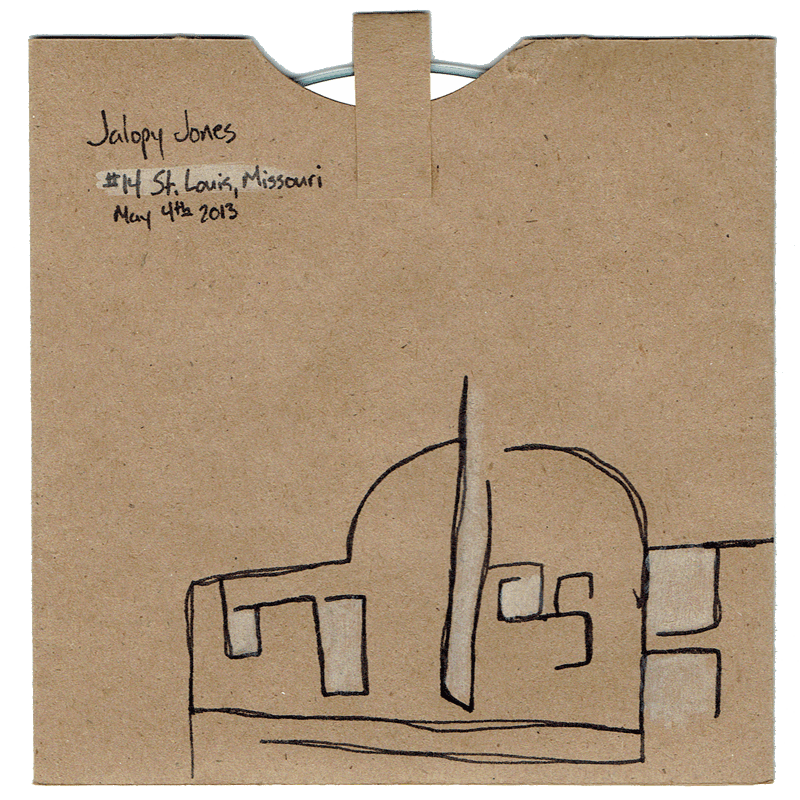 Jalopy Jones
#14 St. Louis, Missouri
May 4th 2013